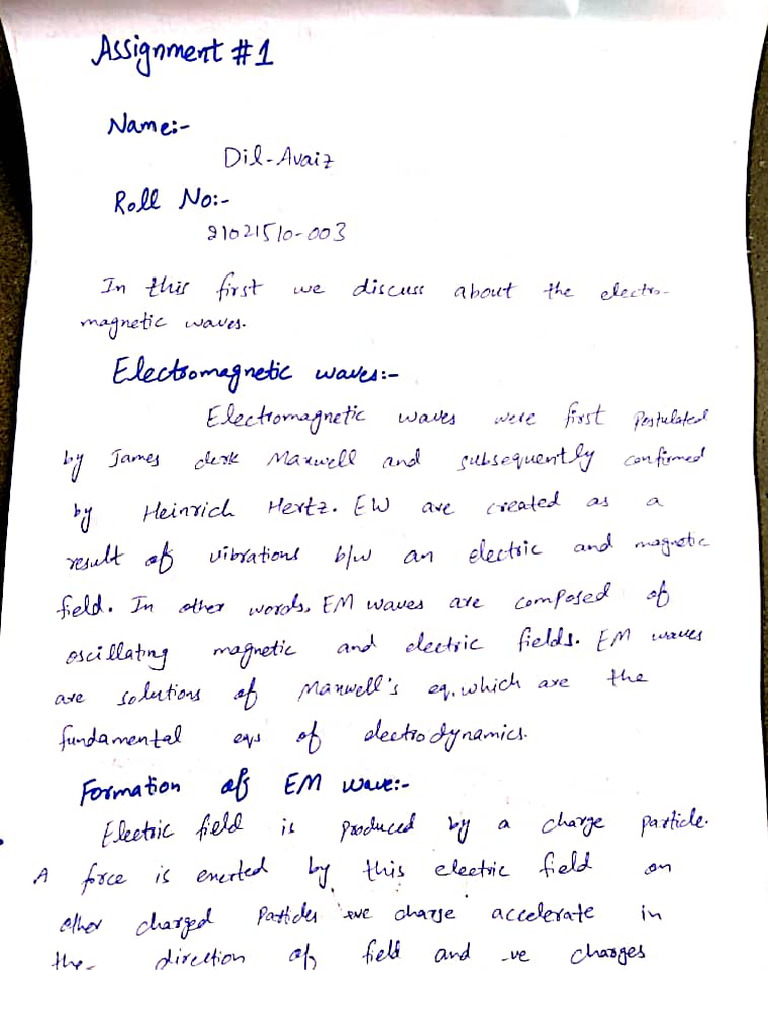 Assignment #1
Name:-
Dil-Avaiz
Roll No:-
21021510-003
In this first we discuss about the electro-
magnetic waves.
Electromagnetic waves:-
Electromagnetic waves were first Postulated
by James clerk Maxwell and subsequently confirmed
by Heinrich Hertz. EW are created as a
result of vibrations b/w an electric and magnetic
field. In other words, EM waves are composed of
oscillating magnetic and electric fields. EM waves
are solutions of Maxwell's eq. which are the
fundamental eqs of electrodynamics.
Formation of EM wave:-
Electric field is produced by a charge particle.
A force is exerted by this electric field on
other charged Particles +ve charge accelerate in
the direction of field and -ve charges